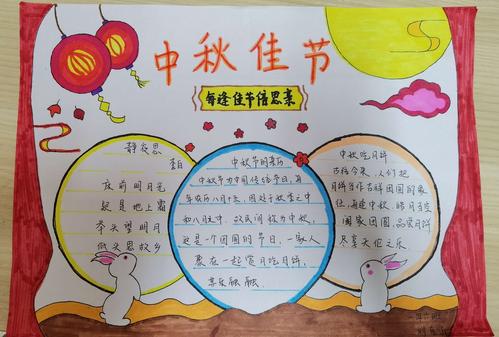 中秋佳节
每逢佳节倍思亲
静夜思
李白
床前明月光
疑是地上霜
举头望明月
低头思故乡
中秋节的来历
中秋节为中国传统节日，每
年农历八月十五，因处于秋季之中
和八月之中，故民间称为中秋，
这是一个团圆的节日，一家人
聚在一起赏月吃月饼，
其乐融融。
中秋吃月饼
古往今来，人们把
月饼当作吉祥团圆的象
征，每逢中秋，皓月当空
阖家团圆，品尝月饼
尽享天伦之乐。